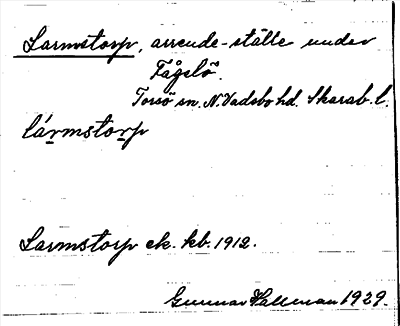 Larmstorp, arrende-ställe under
Fågelö.
Torsö sn. N. Vadsbo hd. Skarab. l.
lármstorp
Larmstorp ek. kb. 1912.
Gunnar Hallman 1929.